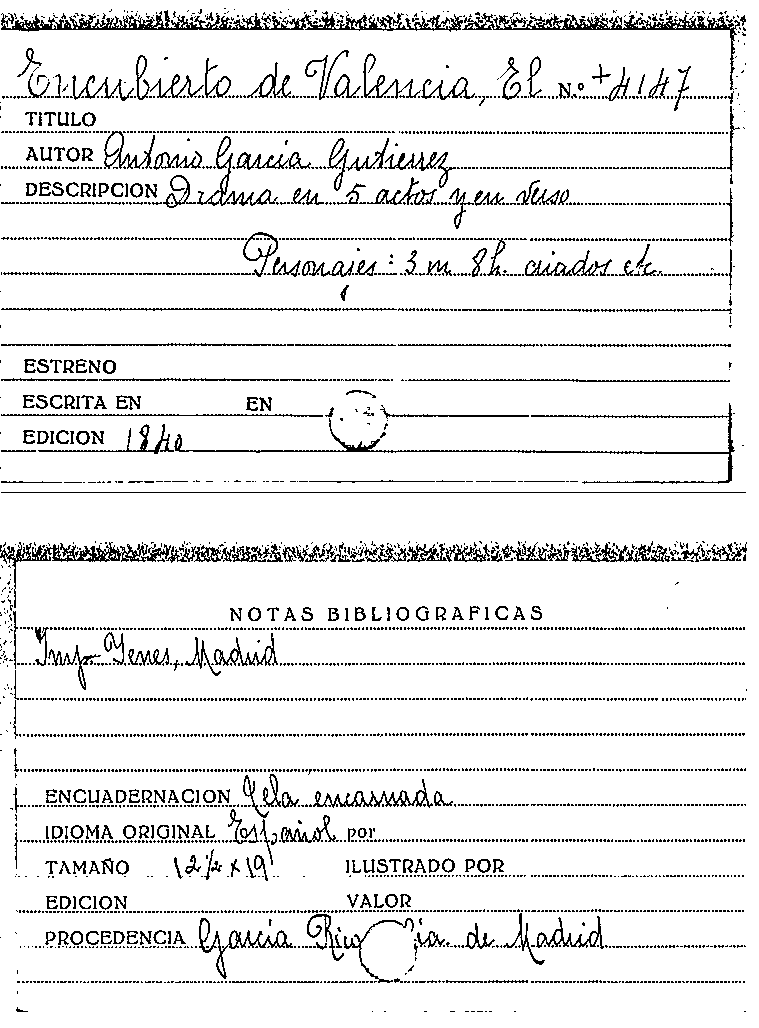 Encubierto de Valencia, El N.º +4147
TITULO
AUTOR Antonio García Gutierrez
DESCRIPCION Drama en 5 actos y en verso
Personajes: 3 m 8h. criados etc.
ESTRENO
ESCRITA EN EN
EDICION 1840
NOTAS BIBLIOGRAFICAS
Imp Yenes, Madrid
ENCUADERNACION Tela encarnada
IDIOMA ORIGINAL Español por
TAMAÑO 12½ x 19 ILUSTRADO POR
EDICION VALOR
PROCEDENCIA García Rico ia. de Madrid